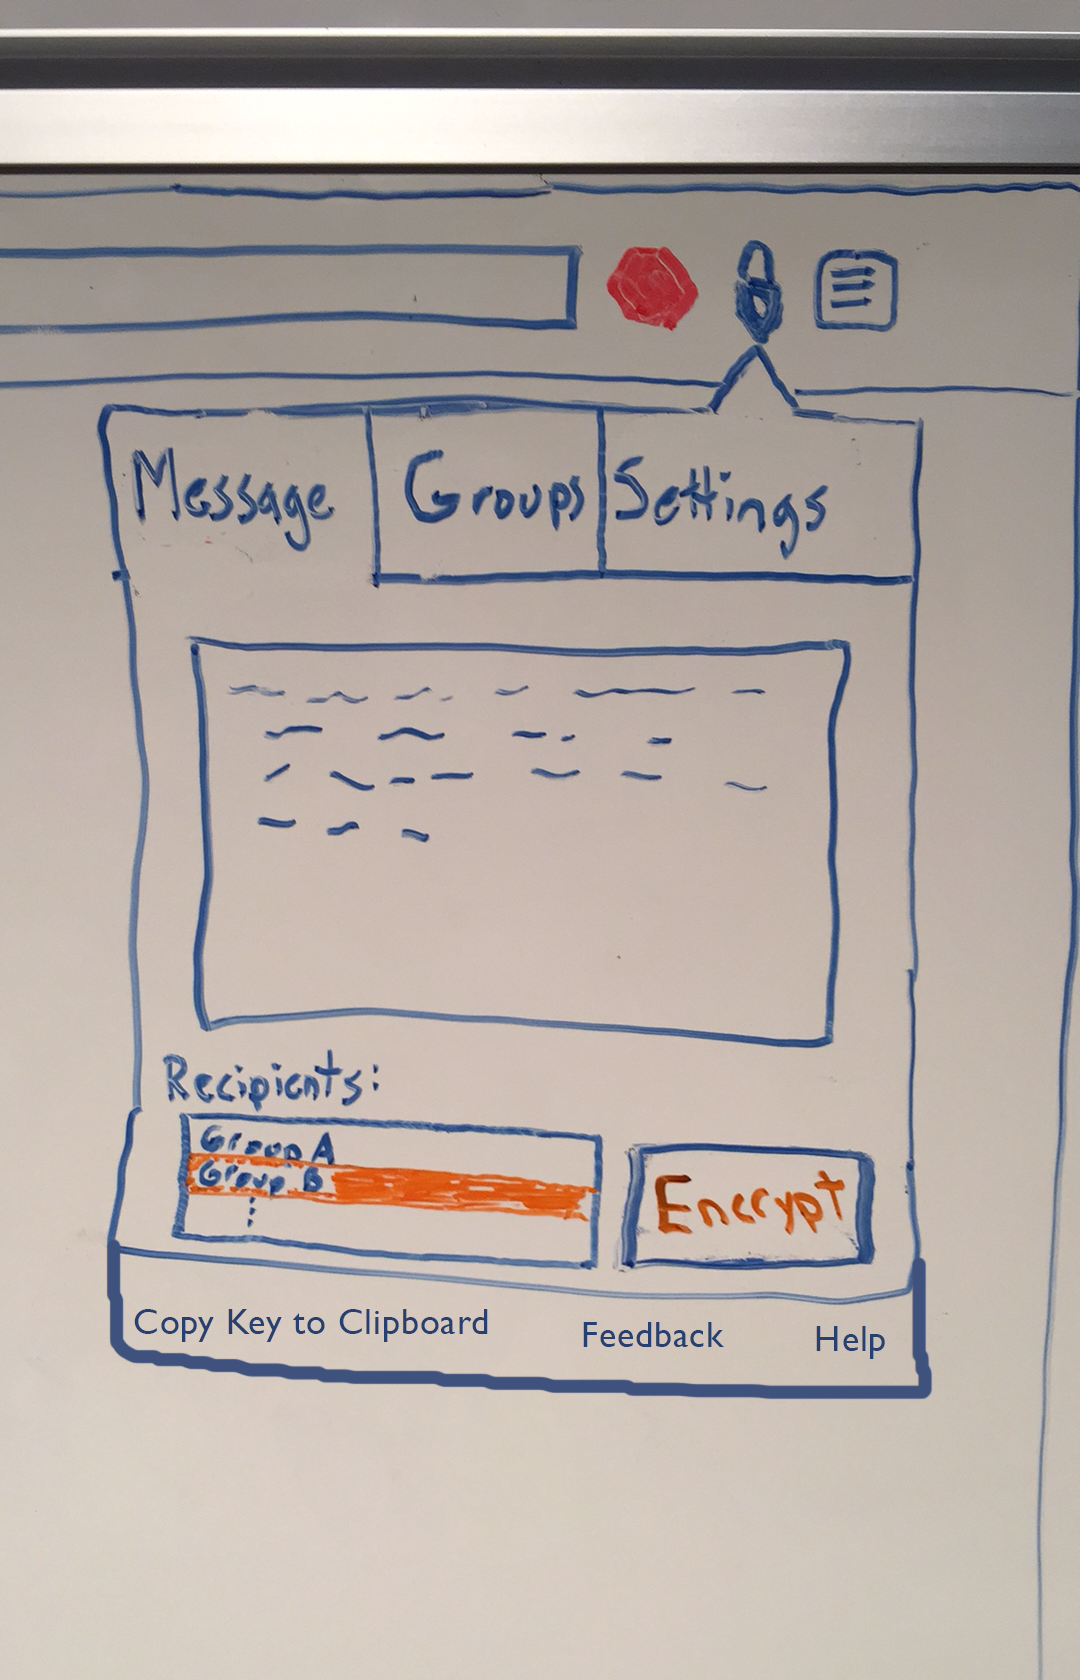 Message Groups Settings
Recipients:
Group A
Group B
Encrypt
Copy Key to Clipboard Feedback Help